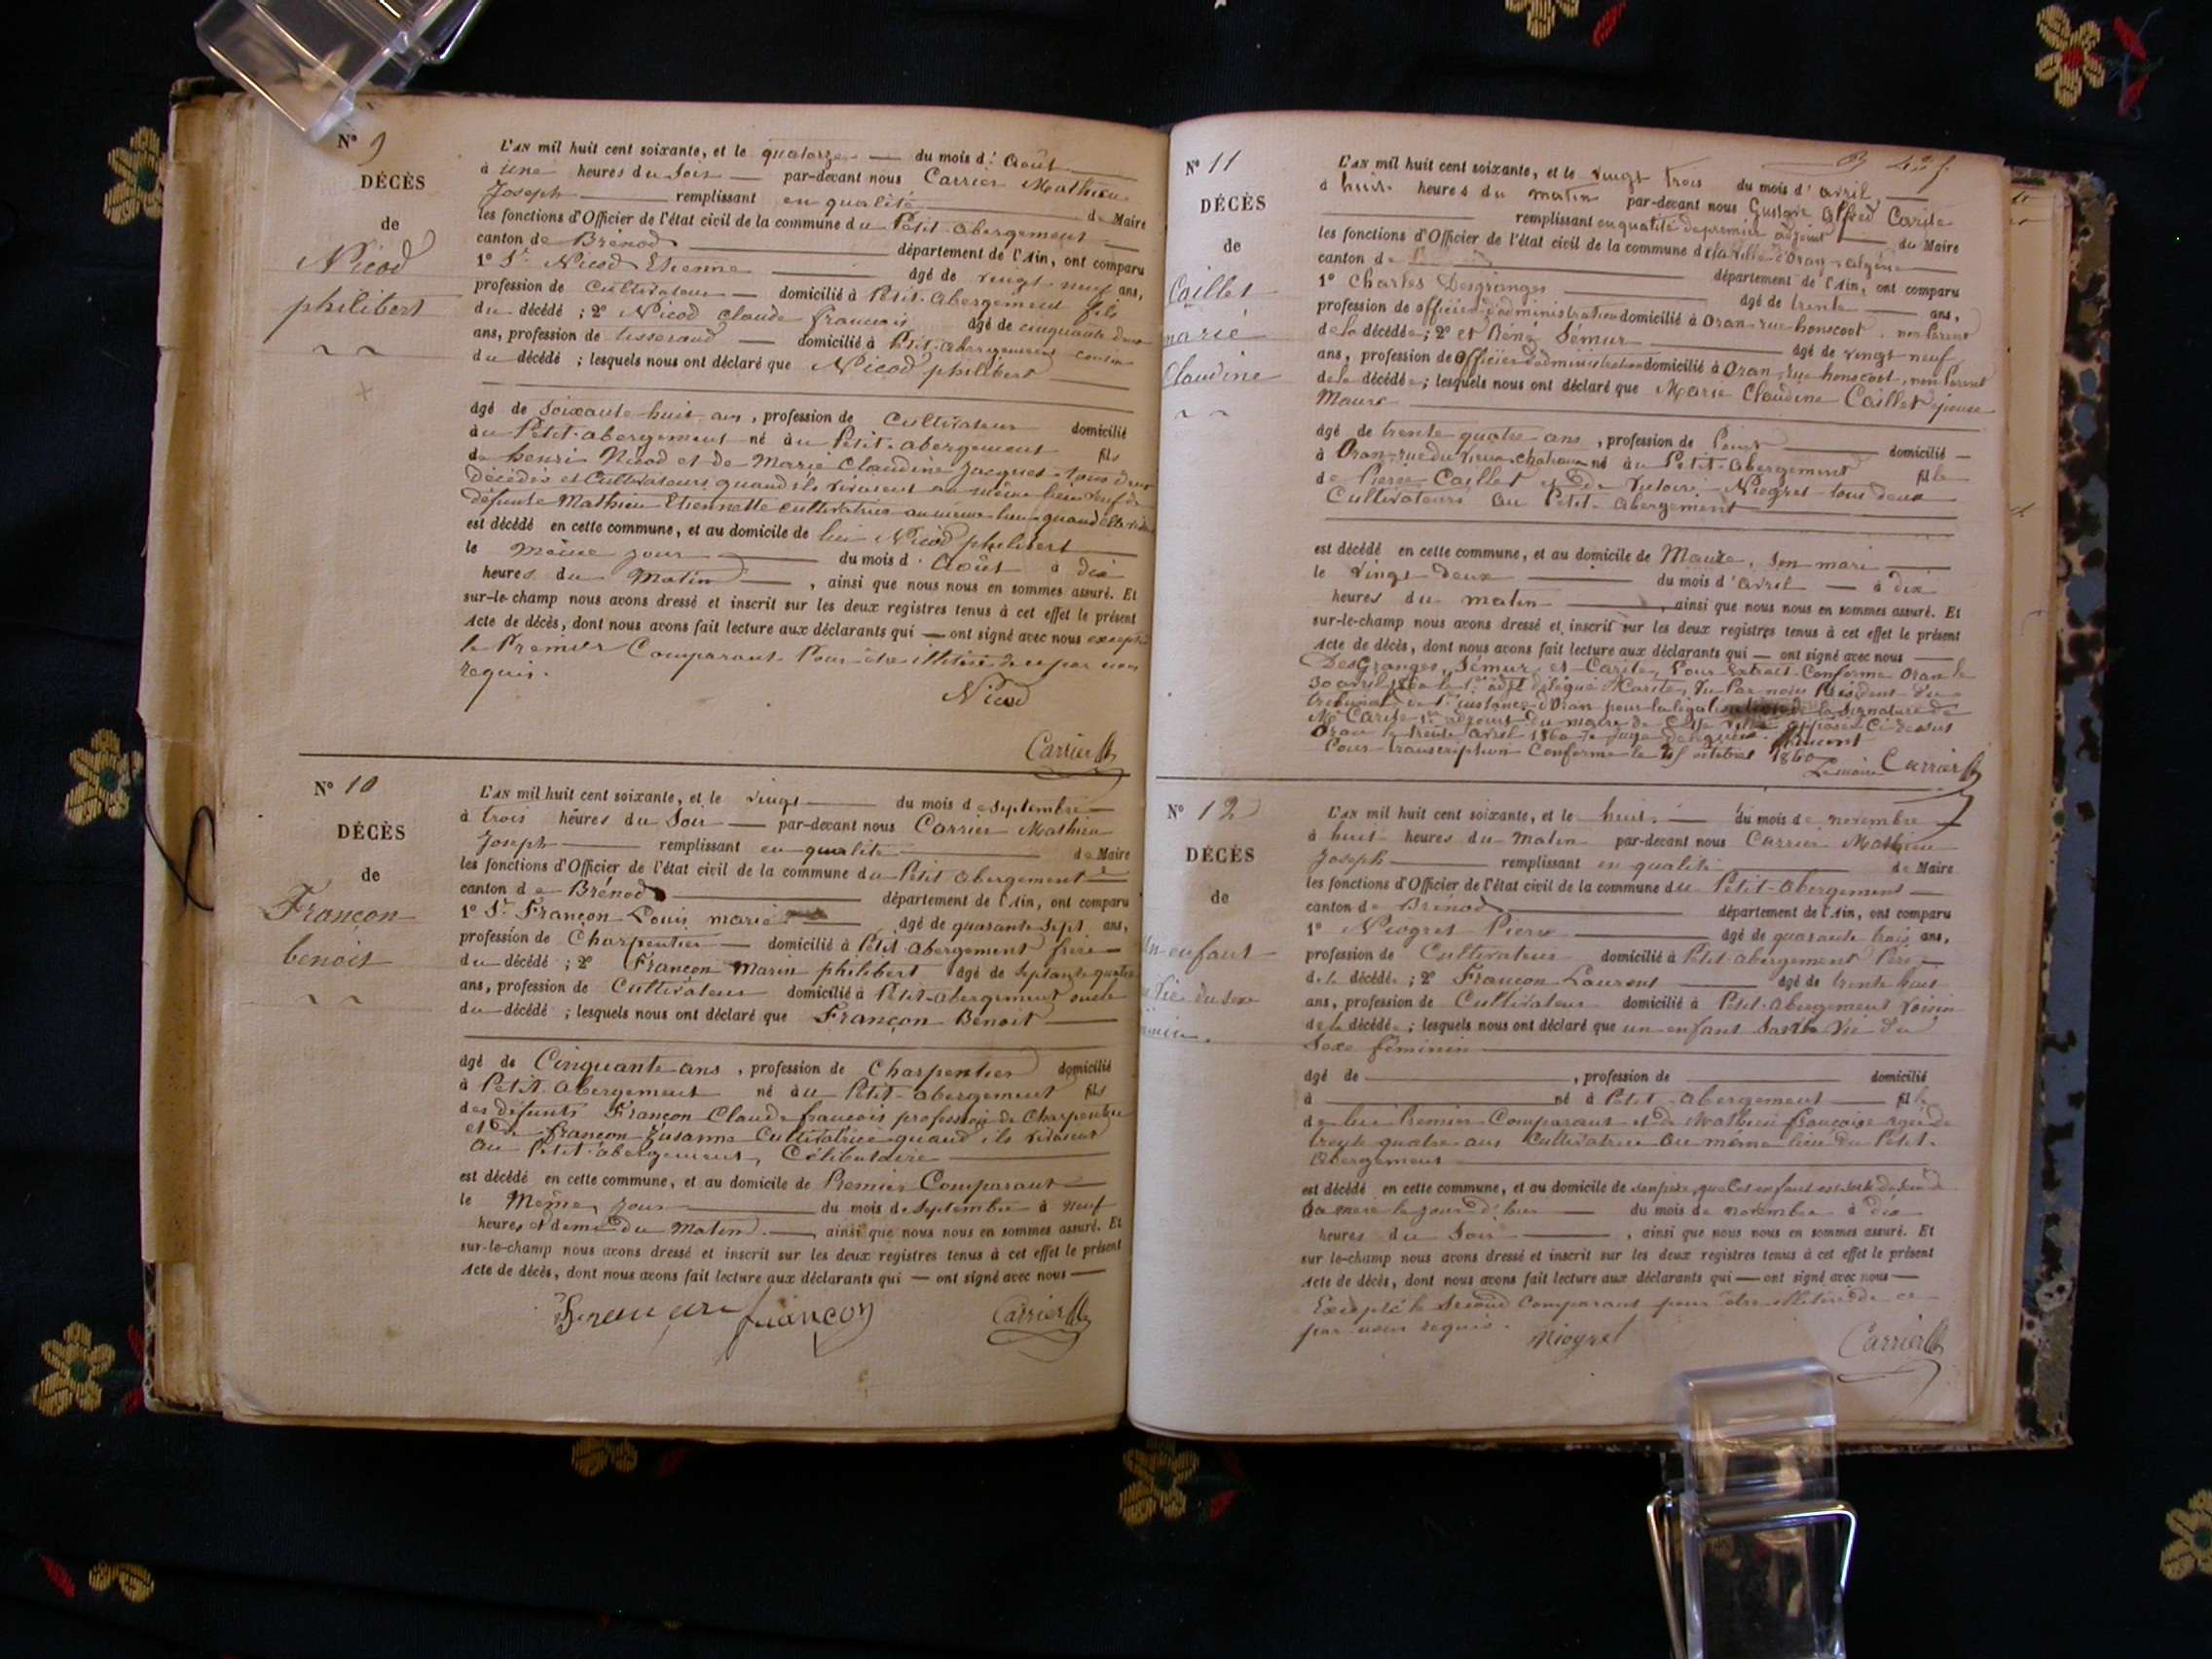 N° 9
DÉCÈS
de
Nicod
philibert
L'AN mil huit cent soixante, et le quatorze du mois d' Août
à une heures du Soir par-devant nous Carrier Mathieu
Joseph remplissant en qualité de Maire
les fonctions d'Officier de l'état civil de la commune du Petit-abergement
canton de Brénod département de l'Ain, ont comparu
1° Sr Nicod Etienne âgé de vingt neuf ans,
profession de Cultivateur domicilié à Petit-abergement fils
du décédé ; 2° Nicod Claude francois âgé de cinquante deux
ans, profession de tisserand domicilié à Petit-abergement cousin
du décédé ; lesquels nous ont déclaré que Nicod philibert
âgé de soixante huit ans, profession de Cultivateur domicilié
au Petit-abergement né au Petit-abergement fils
de henri Nicod et de Marie Claudine Jacquet tous deux
Décédés et Cultivateurs quand ils vivaient au même lieu veuf de
défunte Mathieu Etiennette cultivatrice au même lieu quand elle
est décédé en cette commune, et au domicile de lui Nicod philibert
le même jour du mois d' Août à dix
heures du Matin, ainsi que nous nous en sommes assuré. Et
sur-le-champ nous avons dressé et inscrit sur les deux registres tenus à cet effet le présent
Acte de décès, dont nous avons fait lecture aux déclarants qui — ont signé avec nous excepté
le Premier Comparant Pour être illitéré de ce par nous
requis.
Nicod
Carrier
N° 10
DÉCÈS
de
Françon
benoit
L'AN mil huit cent soixante, et le vingt du mois de septembre
à trois heures du Soir par-devant nous Carrier Mathieu
Joseph remplissant en qualité de Maire
les fonctions d'Officier de l'état civil de la commune du Petit abergement
canton de Brénod département de l'Ain, ont comparu
1° Sr Françon Louis marie âgé de quarante sept ans,
profession de Charpentier domicilié à Petit abergement frère
du décédé ; 2° Françon Marin philibert âgé de septante quatre
ans, profession de Cultivateur domicilié à Petit-abergement oncle
du décédé ; lesquels nous ont déclaré que Françon Benoit
âgé de Cinquante ans, profession de Charpentier domicilié
à Petit-abergement né au Petit-abergement fils
des défunts Françon Claude francois profession de Charpentier
et de françon Suzanne Cultivatrice quand ils vivaient
au Petit-abergement, Célibataire
est décédé en cette commune, et au domicile de Premier Comparant
le Même jour du mois de Septembre à neuf
heures et demi du Matin, ainsi que nous nous en sommes assuré. Et
sur-le-champ nous avons dressé et inscrit sur les deux registres tenus à cet effet le présent
Acte de décès, dont nous avons fait lecture aux déclarants qui — ont signé avec nous
françon Carrier
N° 11
DÉCÈS
de
Caillet
marié
Claudine
L'AN mil huit cent soixante, et le vingt trois du mois d' avril
à huit heures du matin par-devant nous Gustave Alfred Carite
remplissant en qualité de premier adjoint du Maire
les fonctions d'Officier de l'état civil de la commune de la ville d'Oran algérie
canton de département de l'Ain, ont comparu
1° Charles Desgranges âgé de trente ans,
profession de officier d'administration domicilié à Oran rue honscoot, non Parent
de la décédée ; 2° et Réné Sémur âgé de vingt neuf
ans, profession de officier d'administration domicilié à Oran, rue honscoot, non Parent
de la décédée ; lesquels nous ont déclaré que Marie Claudine Caillet épouse
Maure
âgé de trente quatre ans, profession de domicilié
à Oran rue du vieux chateau né au Petit-Abergement fille
de Pierre Caillet et de Victoire Niogret tous deux
Cultivateurs au Petit-Abergement
est décédé en cette commune, et au domicile de Maure, son mari
le vingt deux du mois d' avril à dix
heures du matin, ainsi que nous nous en sommes assuré. Et
sur-le-champ nous avons dressé et inscrit sur les deux registres tenus à cet effet le présent
Acte de décès, dont nous avons fait lecture aux déclarants qui — ont signé avec nous
DesGranges, Sémur et Carite, Pour Extrait Conforme Oran le
30 avril 1860 le 1er adjt délégué Carite, Vu Par nous Président du
tribunal de 1re instance d'Oran pour la légalisation de la Signature de
Mr Carite 1er adjoint du maire de apposée Ci-dessus
Oran le trente avril 1860 le juge
Pour transcription Conforme le octobre 1860
Le maire Carrier
N° 12
DÉCÈS
de
Un enfant
vie du sexe
L'AN mil huit cent soixante, et le huit du mois de novembre
à huit heures du Matin par-devant nous Carrier Mathieu
Joseph remplissant en qualité de Maire
les fonctions d'Officier de l'état civil de la commune du Petit-abergement
canton de Brénod département de l'Ain, ont comparu
1° Niogret Pierre âgé de quarante trois ans,
profession de Cultivateur domicilié à Petit abergement Père
de la décédée ; 2° Françon Laurent âgé de trente huit
ans, profession de Cultivateur domicilié à Petit-abergement voisin
de la décédée ; lesquels nous ont déclaré que un enfant sans vie du
Sexe féminin
âgé de , profession de domicilié
à né à Petit-abergement fille
de lui Premier Comparant et de Mathieu françoise agée de
trente quatre ans Cultivatrice au même lieu du Petit-
Abergement
est décédé en cette commune, et au domicile de son père, que Cet enfant est sorti du sein de
Sa mère le jour d'hier du mois de novembre à dix
heures du Soir, ainsi que nous nous en sommes assuré. Et
sur le-champ nous avons dressé et inscrit sur les deux registres tenus à cet effet le présent
Acte de décès, dont nous avons fait lecture aux déclarants qui — ont signé avec nous
Excepté le Second Comparant pour être illitéré de ce
par nous requis. Niogret Carrier